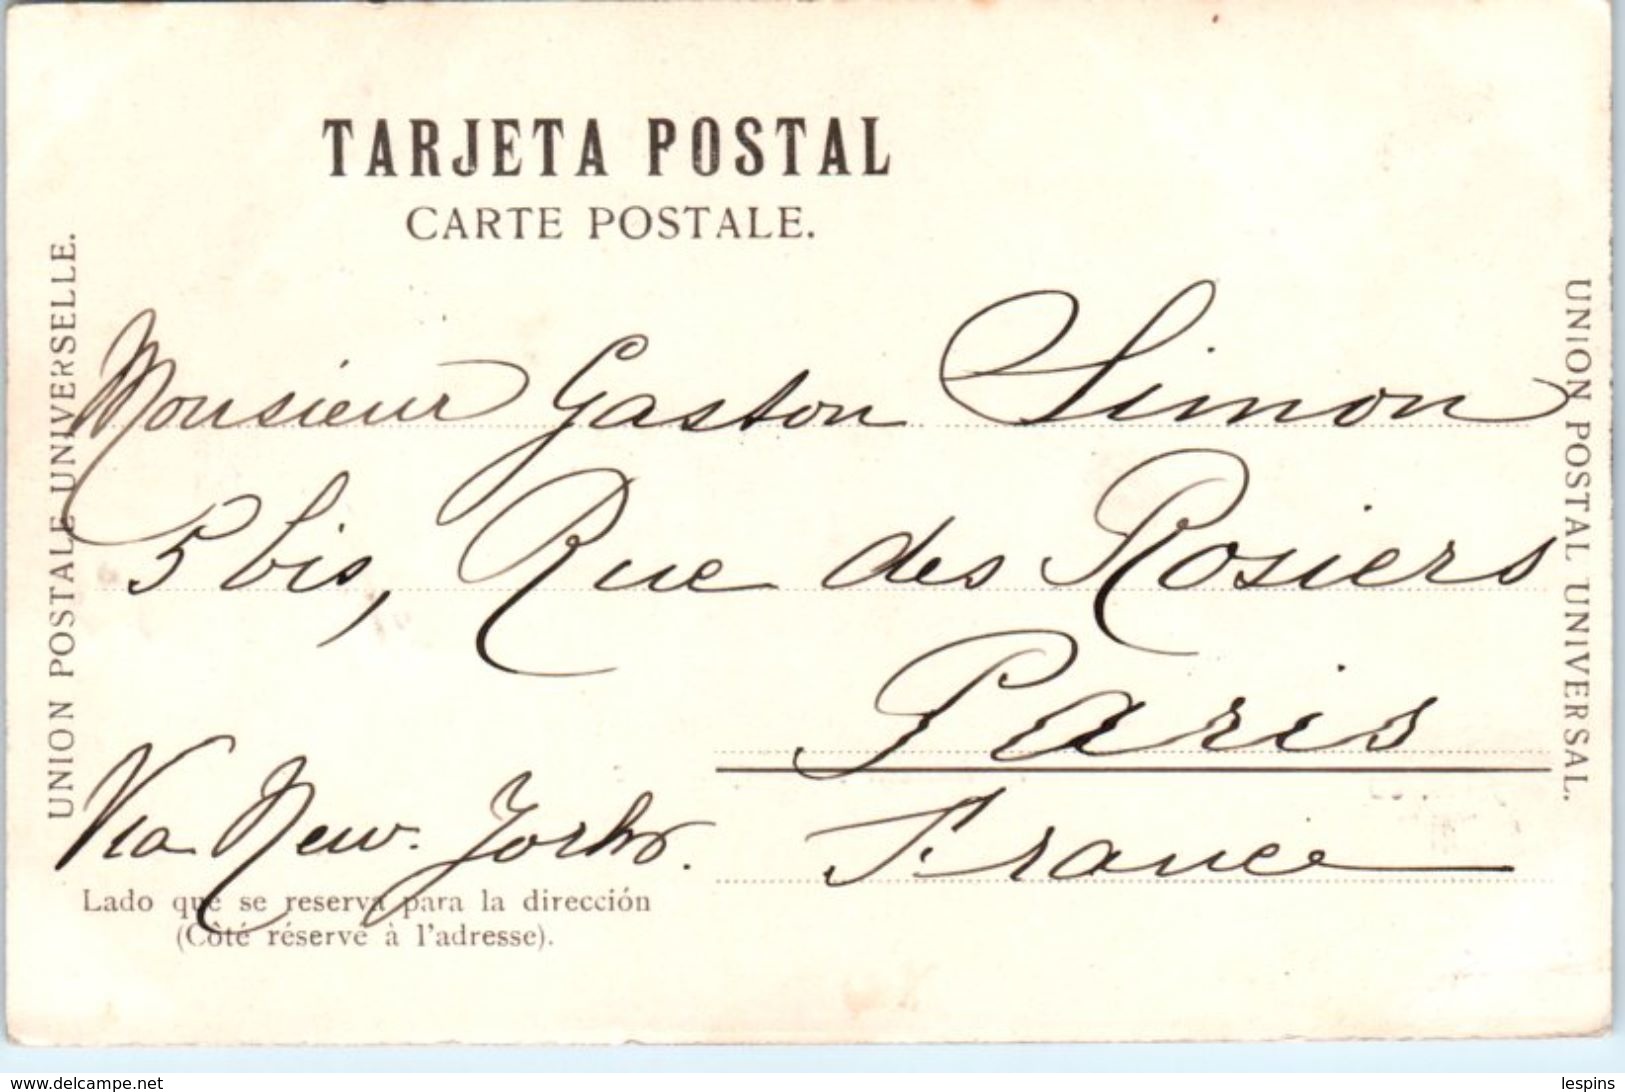 TARJETA POSTAL
CARTE POSTALE.
UNION POSTALE UNIVERSELLE.
UNION POSTAL UNIVERSAL.
Monsieur Gaston Simon
5 bis, Rue des Rosiers
Paris
France
Via New-York.
Lado que se reserva para la dirección
(Côté réservé à l'adresse).
www.delcampe.net
lespins